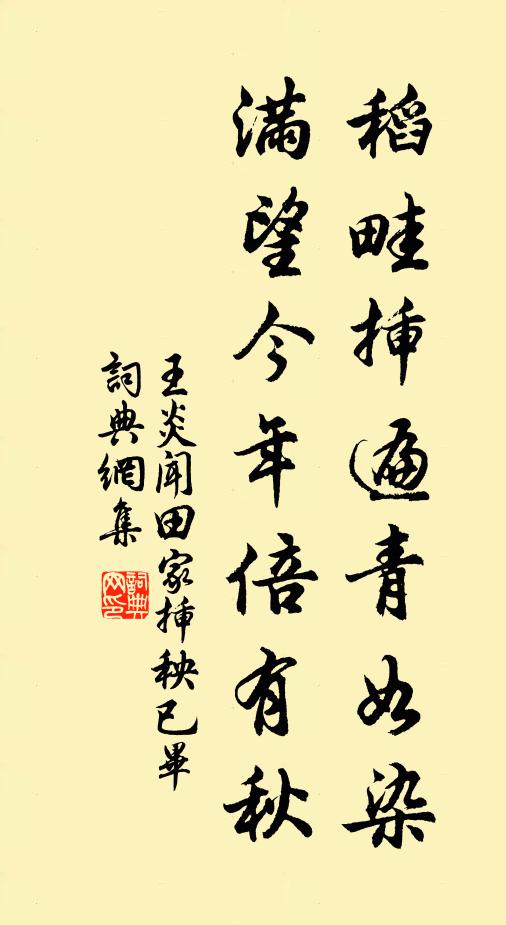 稻畦插遍青如染
满望今年倍有秋
王炎闻田家插秧已畢
詞典網集
詞典网印